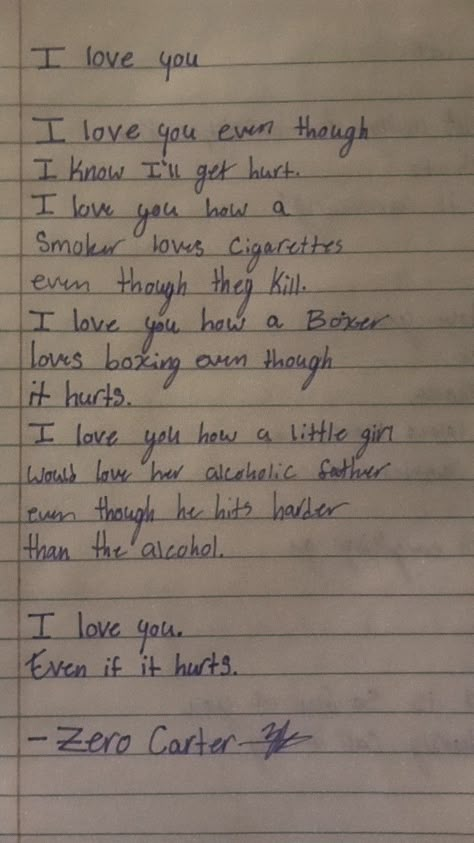 I love you
I love you even though
I know I'll get hurt.
I love you how a
Smoker loves cigarettes
even though they kill.
I love you how a Boxer
loves boxing even though
it hurts.
I love you how a little girl
would love her alcoholic father
even though he hits harder
than the alcohol.
I love you.
Even if it hurts.
- Zero Carter